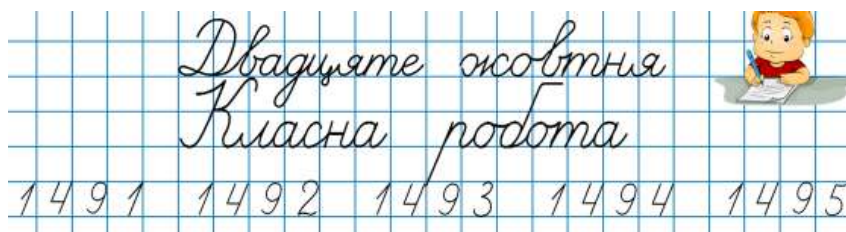 Двадцяте жовтня
Класна робота
1491 1492 1493 1494 1495